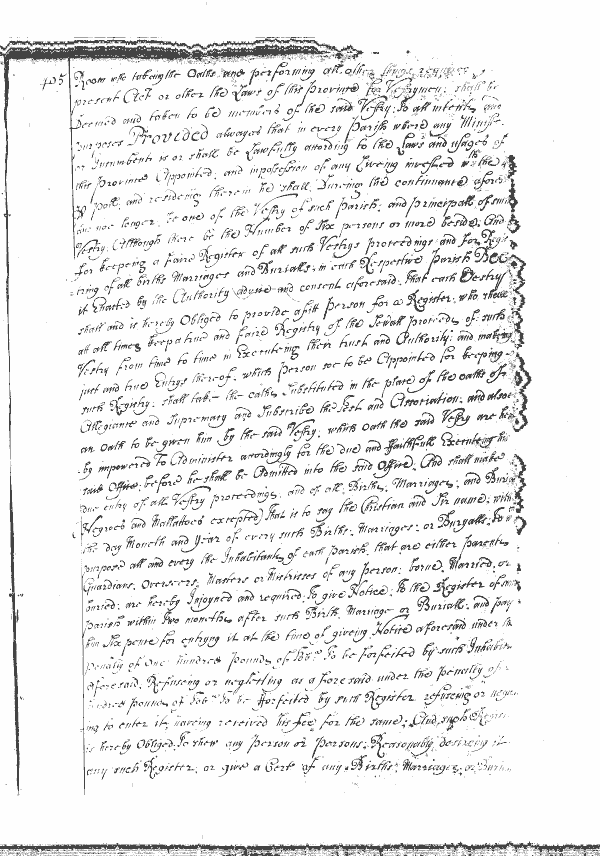 405
Room use takeing the Oaths and performing all other things required
present Act or other the Laws of this Province for Vestrymen; shall be
Deemed and taken to be members of the said Vestry. To all intents and
purposes Provided alwayes that in every Parish where any Minist
or Incumbents is or shall be Lawfully according to the Laws and usages of
this Province Appointed; and in possession of any Liveing invessed with the 4
P poll, and resideing therein he shall, Dureing the continuance afores
and noe longer; be one of the Vestry of such Parish; and principall of such
Vestry; Although there be the Number of Six persons or more beside; And
for keeping a Faire Register of all such Vestrys proceedings; and for Regis
tring of all births Marriages and Buryalls; in each Respective Parish Be
it Enacted by the Authority advise and consent aforesaid; that each Vestry
shall and is hereby Obliged to provide a fitt Person for a Register; who shall
att all times keep a true and faire Registry of the sevall proceeds of such
Vestry from time to time in Executeing their trust and Authority; and making
just and true Entrys thereof, which Person soe to be Appointed for keeping
such Registry; shall take the oaths Substituted in the place of the oaths of
Allegiance and Supremacy and Subscribe the Test and Association; and alsoe
an Oath to be given him by the said Vestry; which Oath the said Vestry are her
by impowered to Administer accordingly for the due and faithfull Executeing his
said Office, before he shall be Admitted into the said Office. And shall make
due entry of all Vestry proceedings; and of all; Births; Marriages; and Burya
(Negroes and Mallattoes excepted) That is to say the Christian and Sir name; with
the day Moneth and year of every such Births; Marriages; or Buryalls; To
purpose all and every the Inhabitants of each Parish, that are either Parents
Guardians, Overseers, Masters or Mistresses of any person; borne, Married, or
buried; are hereby Injoyned and required To give Notice; To the Register of
Parish within two moneths after such Birth, Marriage or Buriall; and pay
him Six pence for entrying it at the time of giveing Notice aforesaid under the
penalty of One hundred pounds of Tobo. To be forfeited by such Inhabitan
aforesaid, Refuseing or neglecting as aforesaid under the penalty of
hundred pounds of Tobo. To be forfeited by such Register refuseing or negle
ing to enter it, haveing received his Fee for the same; And such Regist
is hereby Obliged To shew any Person or Persons; Reasonably desireing it
any such Register; or give a Cert of any Births; Marriages or Buria